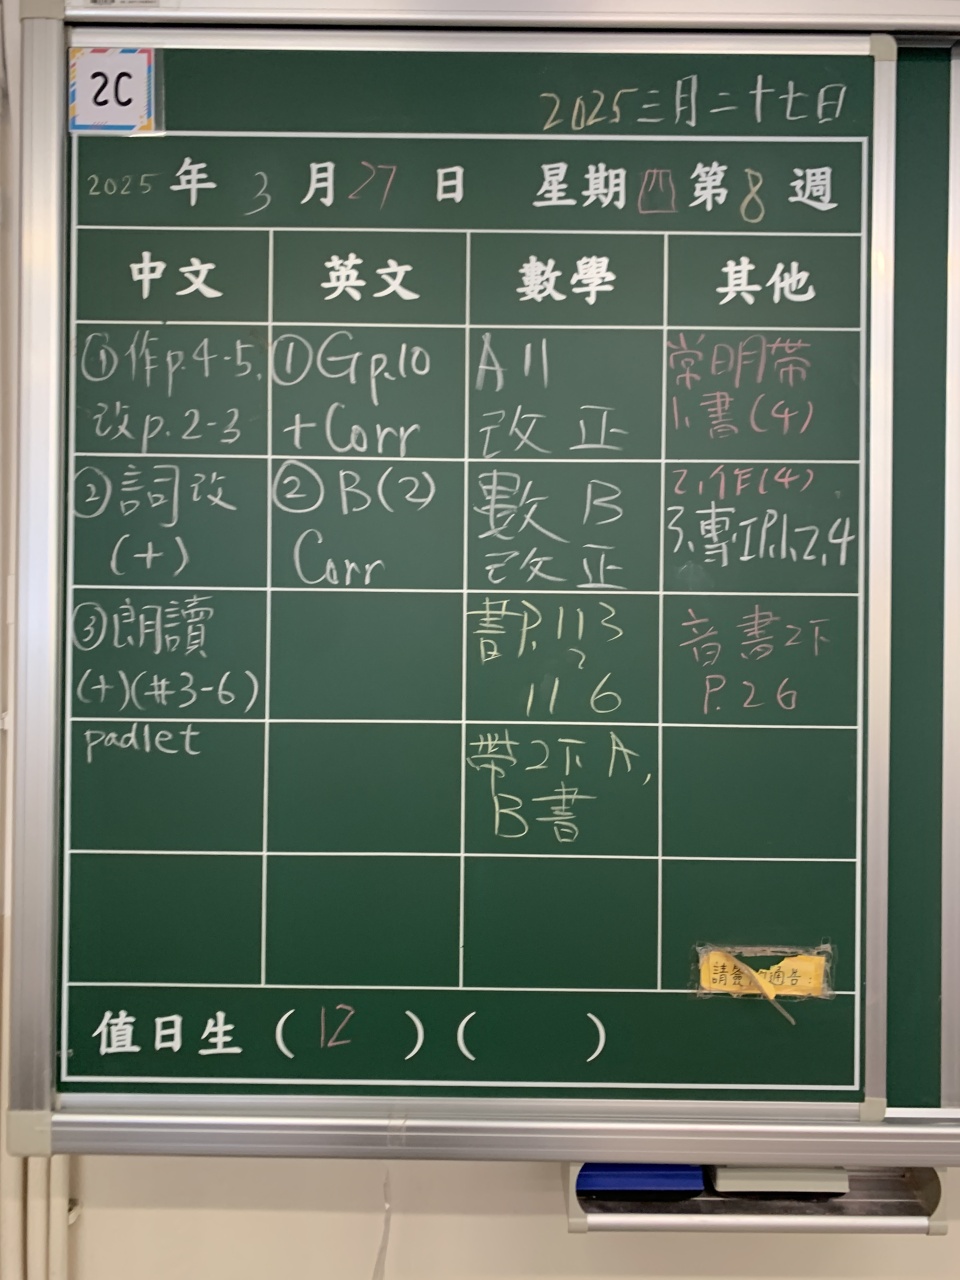 2C
2025三月二十七日
2025年3月27日 星期四第8週
中文 英文 數學 其他
①作p.4-5,
改p.2-3
①Gp.10
+Corr
A11
改正
常明帶
1.書(4)
②詞改
(+)
②B(2)
Corr
數B
改正
2.作(4)
3.專工P.1,2,4
③朗讀
(+)(#3-6)
書P.113,
116
音書2下
P.26
padlet
帶2下A,
B書
請簽 通告:
值日生(12)( )